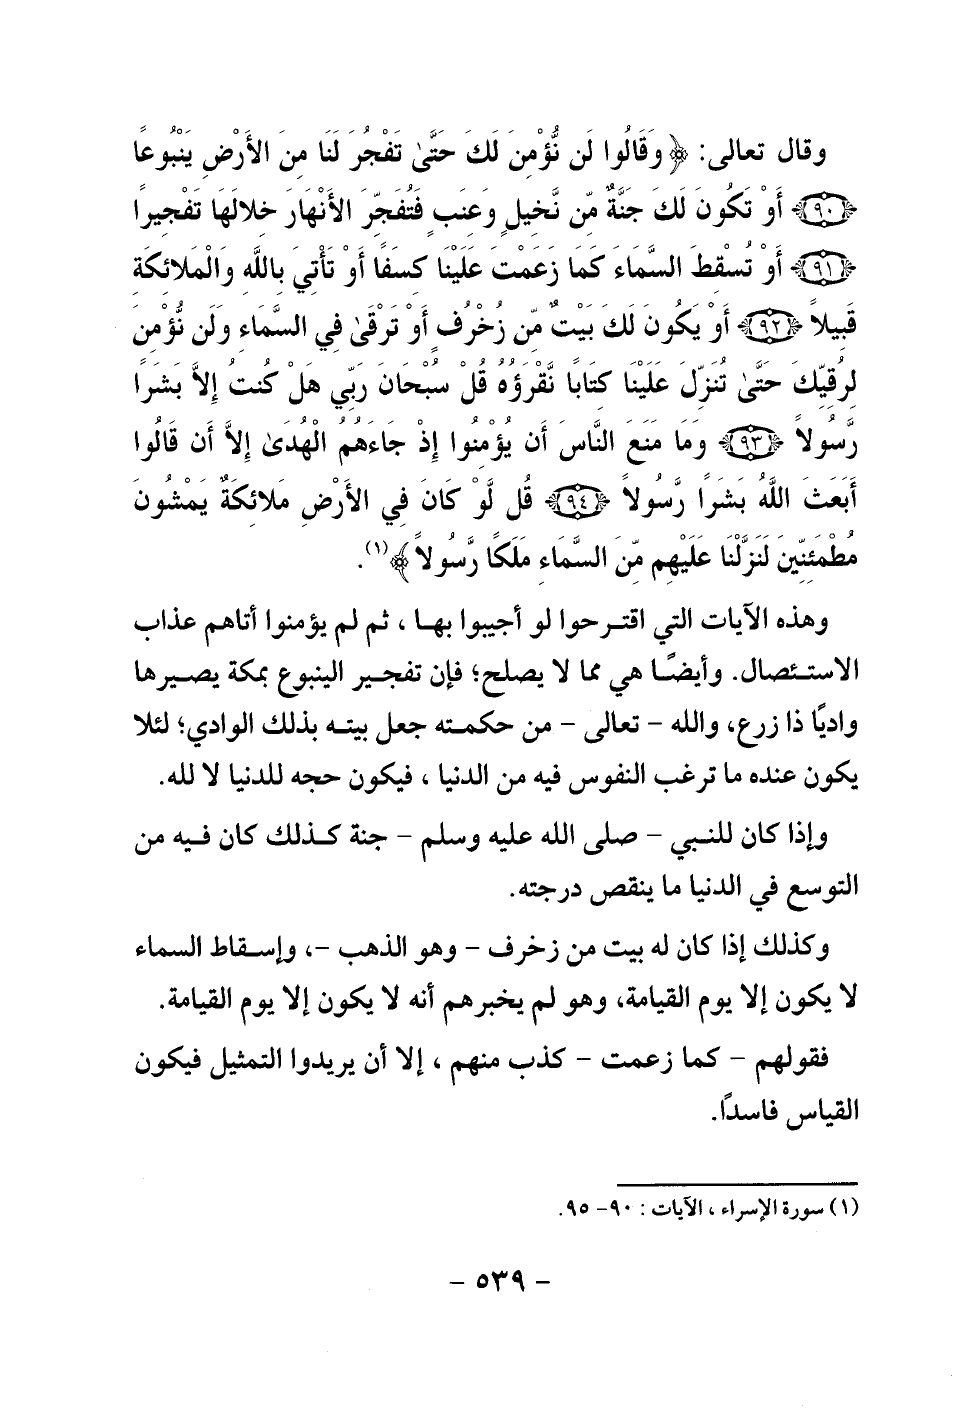 وقال تعالى: ﴿وَقَالُوا لَن نُّؤْمِنَ لَكَ حَتَّىٰ تَفْجُرَ لَنَا مِنَ الأَرْضِ يَنْبُوعًا
﴿٩٠﴾ أَوْ تَكُونَ لَكَ جَنَّةٌ مِّن نَّخِيلٍ وَعِنَبٍ فَتُفَجِّرَ الأَنْهَارَ خِلالَهَا تَفْجِيرًا
﴿٩١﴾ أَوْ تُسْقِطَ السَّمَاءَ كَمَا زَعَمْتَ عَلَيْنَا كِسَفًا أَوْ تَأْتِيَ بِاللَّهِ وَالْمَلائِكَةِ
قَبِيلاً ﴿٩٢﴾ أَوْ يَكُونَ لَكَ بَيْتٌ مِّن زُخْرُفٍ أَوْ تَرْقَىٰ فِي السَّمَاءِ وَلَن نُّؤْمِنَ
لِرُقِيِّكَ حَتَّىٰ تُنَزِّلَ عَلَيْنَا كِتَابًا نَّقْرَؤُهُ قُلْ سُبْحَانَ رَبِّي هَلْ كُنتُ إِلاَّ بَشَرًا
رَّسُولاً ﴿٩٣﴾ وَمَا مَنَعَ النَّاسَ أَن يُؤْمِنُوا إِذْ جَاءَهُمُ الْهُدَىٰ إِلاَّ أَن قَالُوا
أَبَعَثَ اللَّهُ بَشَرًا رَّسُولاً ﴿٩٤﴾ قُل لَّوْ كَانَ فِي الأَرْضِ مَلائِكَةٌ يَمْشُونَ
مُطْمَئِنِّينَ لَنَزَّلْنَا عَلَيْهِم مِّنَ السَّمَاءِ مَلَكًا رَّسُولاً﴾(١).
وهذه الآيات التي اقترحوا لو أجيبوا بها ، ثم لم يؤمنوا أتاهم عذاب
الاستئصال. وأيضًا هي مما لا يصلح؛ فإن تفجير الينبوع بمكة يصيرها
واديًا ذا زرع، والله – تعالى – من حكمته جعل بيته بذلك الوادي؛ لئلا
يكون عنده ما ترغب النفوس فيه من الدنيا ، فيكون حجه للدنيا لا لله.
وإذا كان للنبي – صلى الله عليه وسلم – جنة كذلك كان فيه من
التوسع في الدنيا ما ينقص درجته.
وكذلك إذا كان له بيت من زخرف – وهو الذهب –، وإسقاط السماء
لا يكون إلا يوم القيامة، وهو لم يخبرهم أنه لا يكون إلا يوم القيامة.
فقولهم – كما زعمت – كذب منهم ، إلا أن يريدوا التمثيل فيكون
القياس فاسدًا.
(١) سورة الإسراء ، الآيات : ٩٠– ٩٥.
– ٥٣٩ –